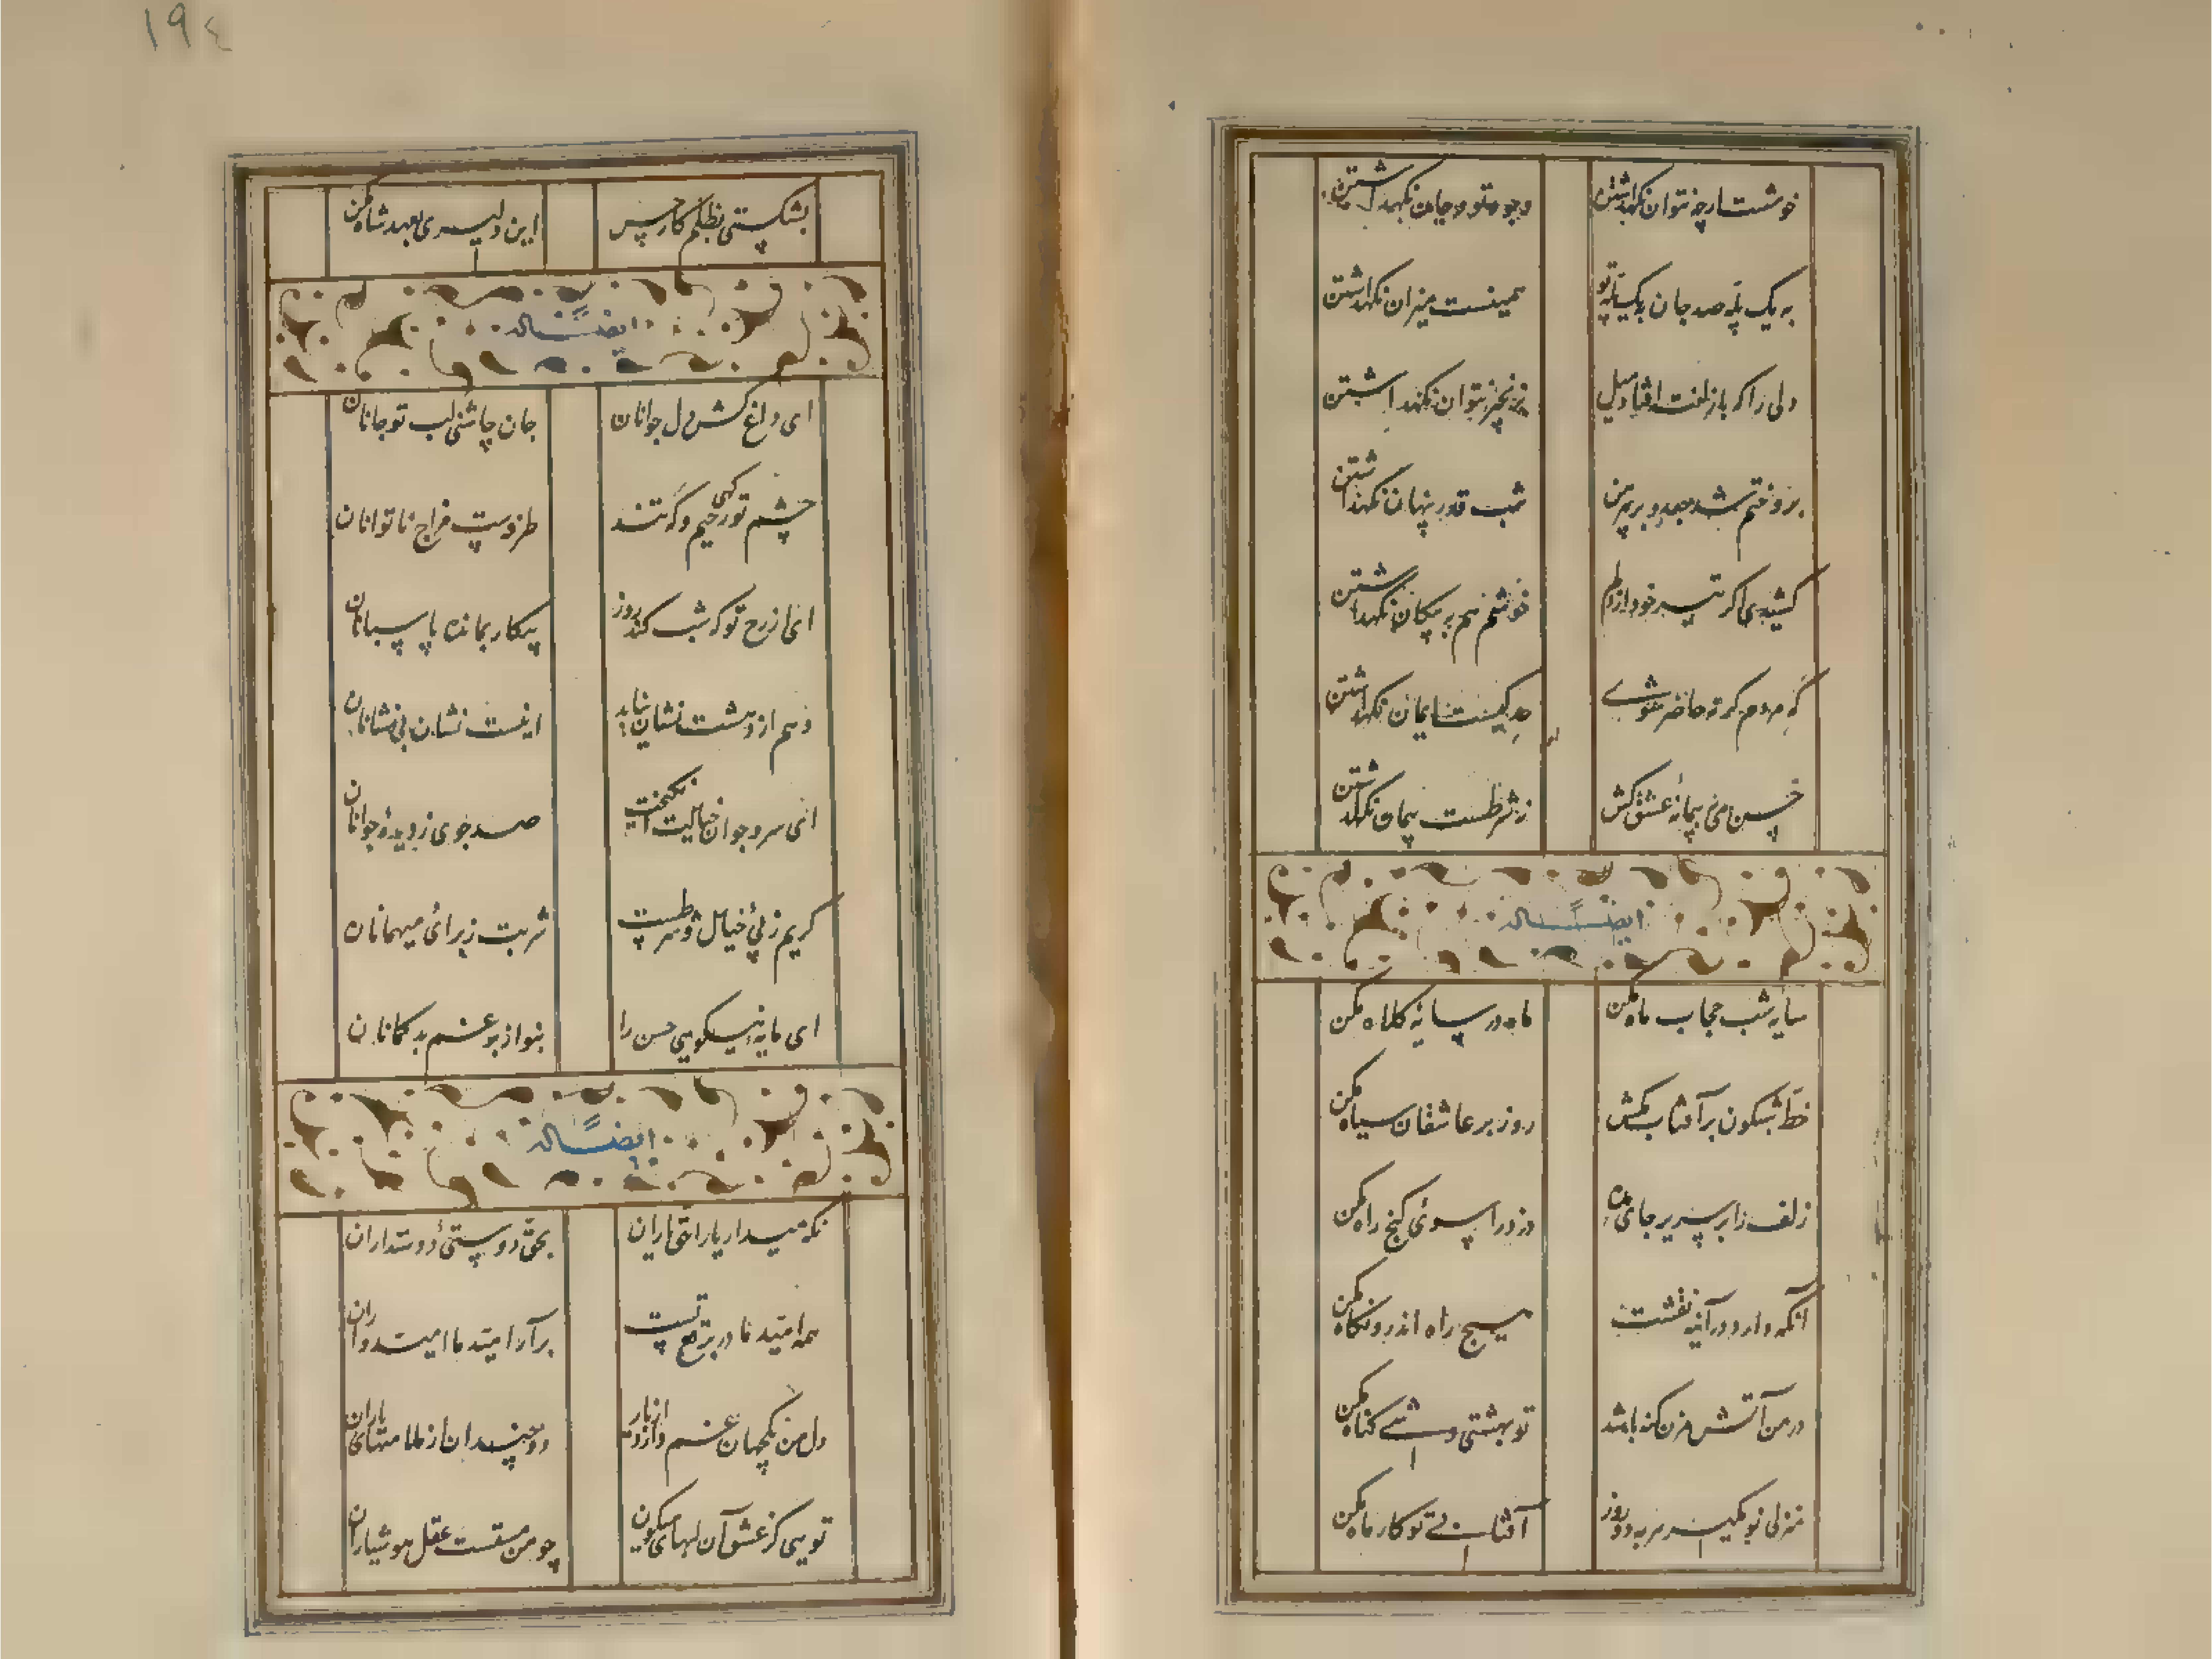 خوشست ارچه نتوان نگهداشتن
وجود تو در جان نگهداشتن
به یک پله صد جان به یک پله تو
همینست میزان نگهداشتن
دلی را که باز لفت افتاد میل
بزنجیر نتوان نگهداشتن
شب قدر پنهان نگهداشتن
کشیدی اگر تیر خود از دلم
خوشم هم به پیکان نگهداشتن
نگهداشتن
حسن می به پیمانهٔ عشق کش
ز شرطست پیمان نگهداشتن
ایضاً له
سایه شب حجاب ماه مکن
ماه در سایهٔ کلاه مکن
خط شبگون بر آفتاب مکش
روز بر عاشقان سیاه مکن
زلف را بر سریر جای مده
دزد را سوی گنج راه مکن
آنکه دارد در آینه نقشت
هیچ راه اندرو نگاه مکن
در من آتش مزن گنه باشد
تو بهشتی وشی گناه مکن
منزلی نو مگیر هر به دو روز
آفتابی تو کار ماه مکن
بشکستی بظلم کار حسن
این دلیری بعهد شاه مکن
ایضاً له
ای داغ کش دل جوانان
جان چاشنی لب تو جانان
چشم تو گهی رحیم و گه تند
طرز وست مزاج ناتوانان
ای از رخ تو که شب کند روز
بیکار بمانده پاسبانان
وهم از دهنت نشان نیابد
اینست نشان بی نشانان
ای سرو جوان خیالت انگیخت
صد جوی ز دیدهٔ جوانان
گریم ز پی خیال و شرطست
شربت ز برای میهمانان
ای مایهٔ نیکویی حسن را
بنواز برغم بدگمانان
ایضاً له
نگه میدار یارا حق یاران
بحق دوستی دوستداران
همه امید ما در برقع تست
برآر امید ما امیدواران
دل من نگهبان غم
دو چندان از ملامتهای یاران
تویی کز عشق آن لبهای میگون
چو من مستست عقل هوشیاران
١٩٤